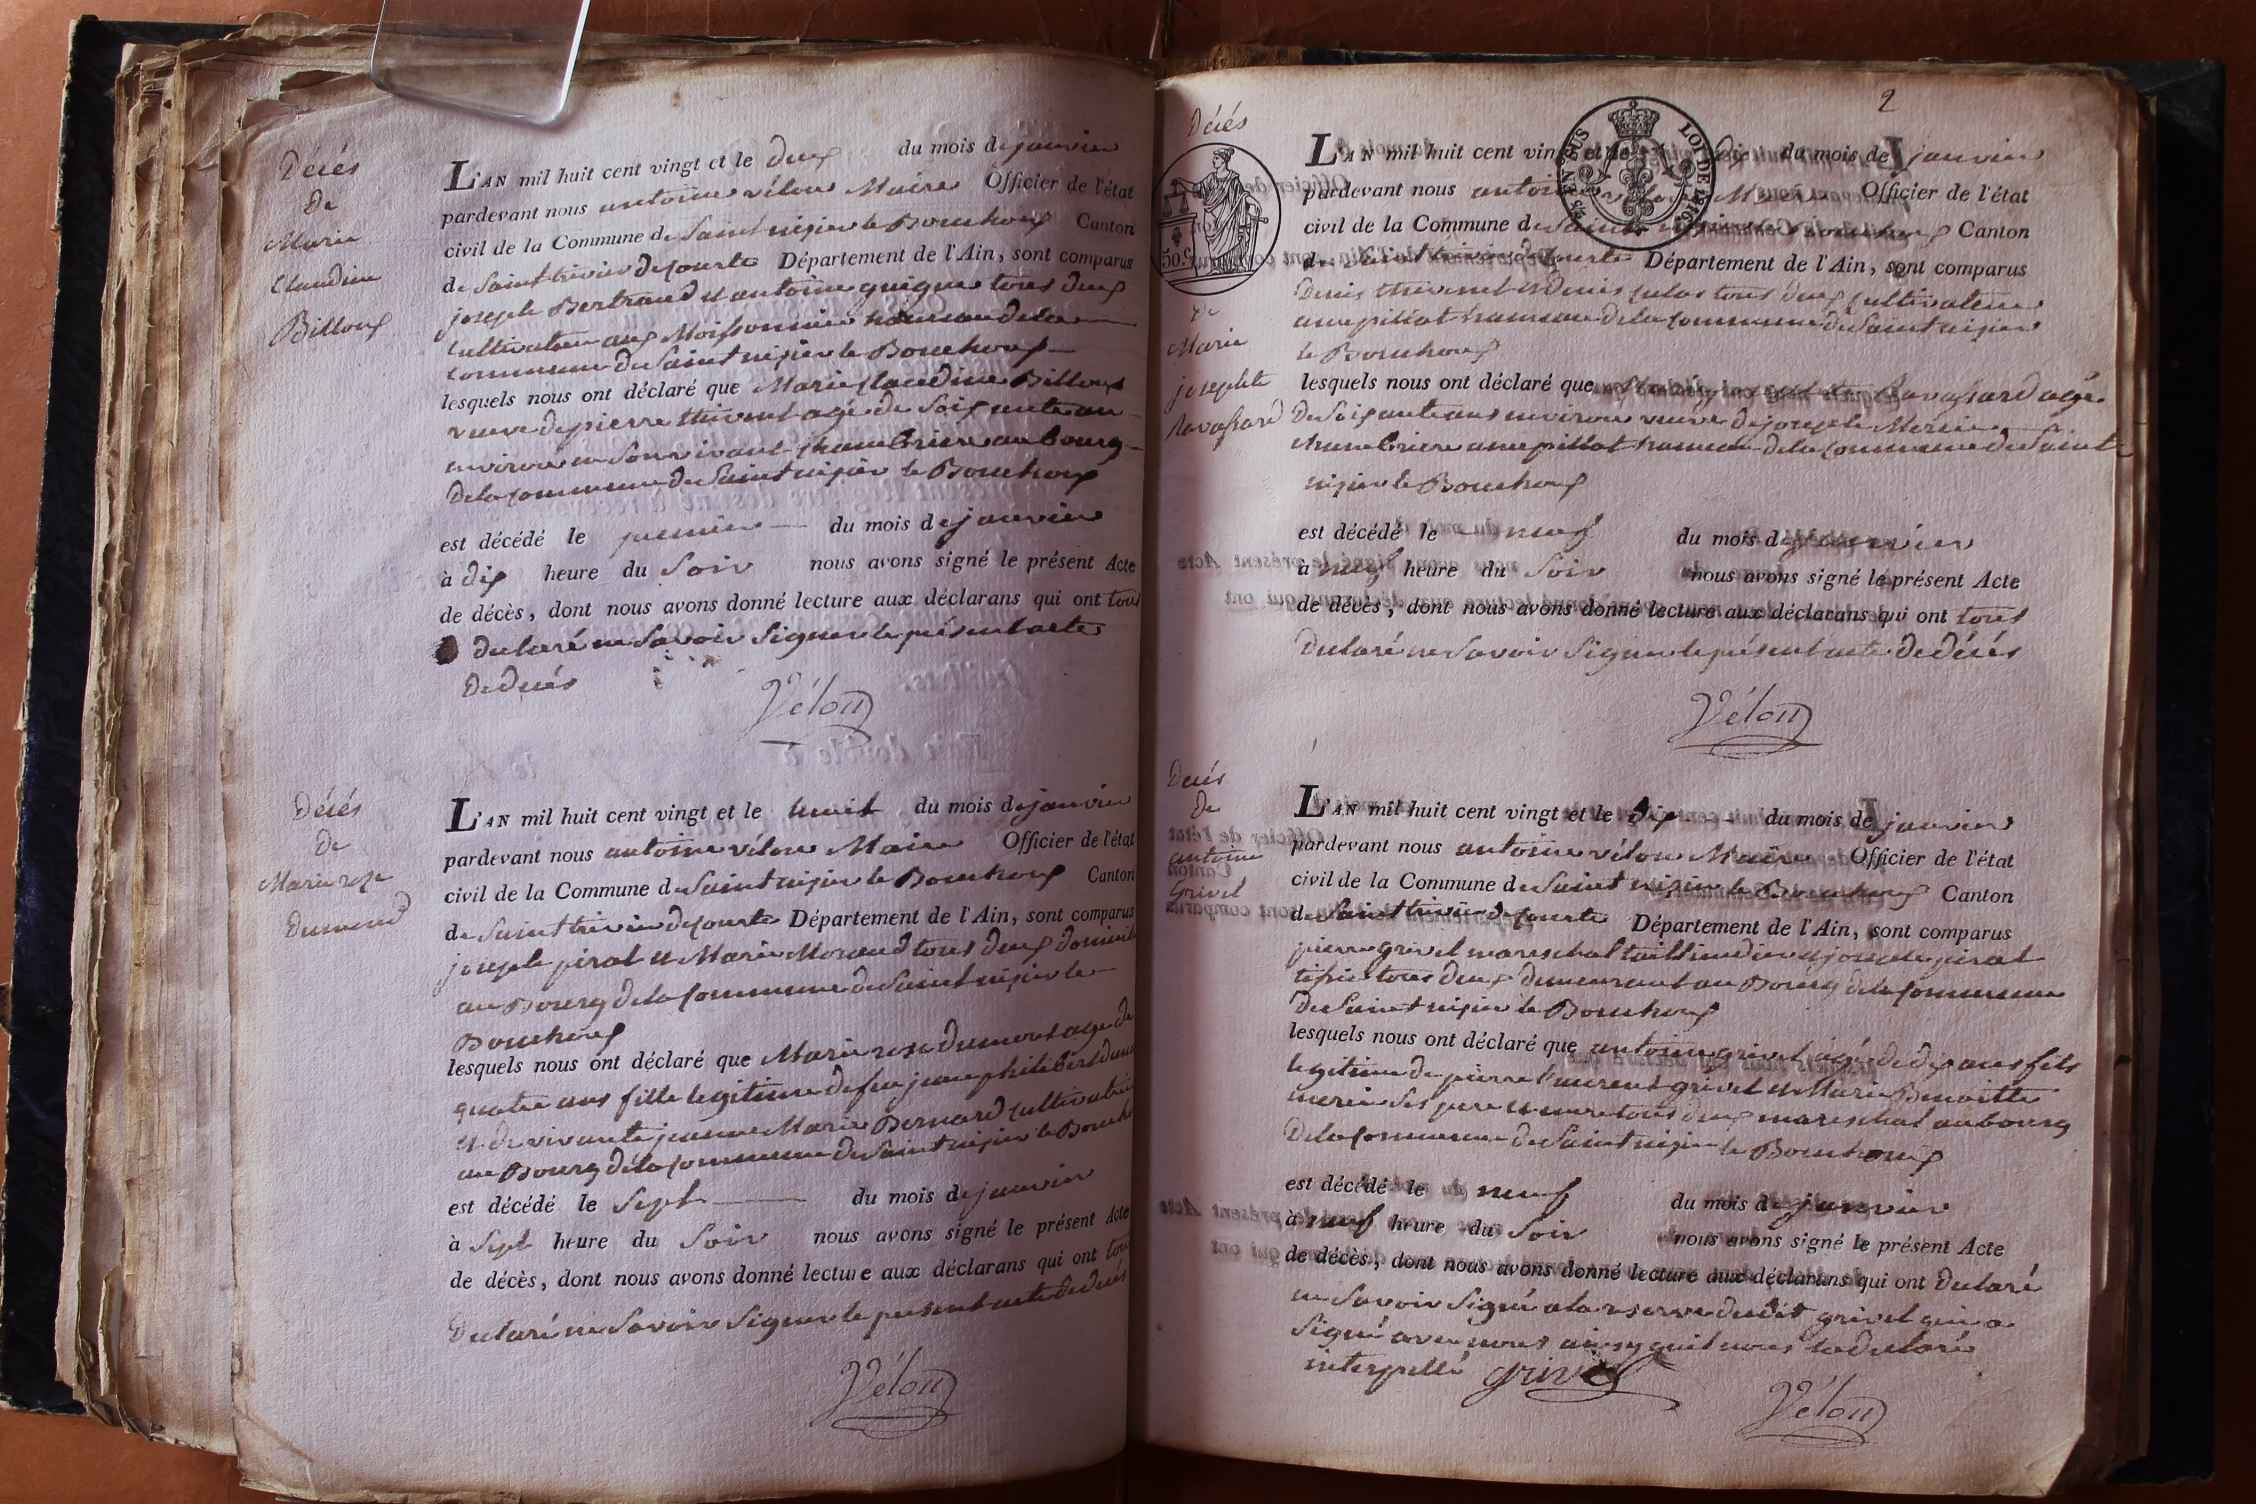 Décés
de
Marie
Claudine
Billoux
L'AN mil huit cent vingt et le deux du mois de janvier
pardevant nous antoine vélon Maire Officier de l'état
civil de la Commune de Saint nizier le Bouchoux Canton
de Saint trivier de courte Département de l'Ain, sont comparus
joseph Bertrand et antoine tous deux
cultivateur aux hameau de la
commune de Saint nizier le Bouchoux
lesquels nous ont déclaré que Marie Claudine Billoux
veuve de pierre thivent agé de Soixante an
environ en Son vivant chambriere au bourg
de la commune de Saint nizier le Bouchoux
est décédé le premier du mois de janvier
à dix heure du Soir nous avons signé le présent Acte
de décès, dont nous avons donné lecture aux déclarans qui ont tous
declaré ne Savoir Signer le présent acte
de decés
Vélon
Décés
de
Marie rose
Dumond
L'AN mil huit cent vingt et le huit du mois de janvier
pardevant nous antoine vélon Maire Officier de l'état
civil de la Commune de Saint nizier le Bouchoux Canton
de Saint trivier de courte Département de l'Ain, sont comparus
joseph pirat et Marie Morand tous deux domicilié
au Bourg de la commune de Saint nizier le
Bouchoux
lesquels nous ont déclaré que Marie rose Dumont age de
quatre ans fille legitime de feu jean philibert dum
et de vivante jeanne Marie Bernard cultivatrice
au Bourg de la commune de Saint nizier le Boucho
est décédé le Sept du mois de janvier
à Sept heure du Soir nous avons signé le présent Acte
de décès, dont nous avons donné lecture aux déclarans qui ont tous
Declaré ne Savoir Signer le présent acte de decés
Vélon
2
Décés
de
Marie
josephte
Ravassard
50.C
EN SUS
LOI DE 1816
L'AN mil huit cent vingt et le dix du mois de janvier
pardevant nous antoine vélon Maire Officier de l'état
civil de la Commune de Saint nizier le Bouchoux Canton
de Saint trivier de courte Département de l'Ain, sont comparus
Denis thivent et Denis tous deux cultivateur
au hameau de la commune de Saint nizier
le Bouchoux
lesquels nous ont déclaré que Ravassard agé
De Soixante ans environ veuve de joseph Morin
chambriere hameau de la commune de Saint
nizier le Bouchoux
est décédé le neuf du mois de janvier
à neuf heure du Soir nous avons signé le présent Acte
de décès, dont nous avons donné lecture aux déclarans qui ont tous
Declaré ne Savoir Signer le présent acte de décés
Vélon
Decés
De
antoine
Grivel
L'AN mil huit cent vingt et le Dix du mois de janvier
pardevant nous antoine vélon Maire Officier de l'état
civil de la Commune de Saint nizier le Bouchoux Canton
de Saint trivier de courte Département de l'Ain, sont comparus
pierre grivel mareschal et joseph pirat
tissier tous deux demeurant au Bourg de la commune
De Saint nizier le Bouchoux
lesquels nous ont déclaré que antoine grivel agé de dix ans fils
legitime de pierre laurent grivel et Marie Benoitte
ses pere et mere tous deux mareschal au bourg
De la commune de Saint nizier le Bouchoux
est décédé le neuf du mois de janvier
à neuf heure du Soir nous avons signé le présent Acte
de décès, dont nous avons donné lecture aux déclarans qui ont declaré
ne Savoir Signé a la reserve dudit grivel qui a
Signé avec nous ainsy quil nous la declaré
interpellé grivel
Vélon